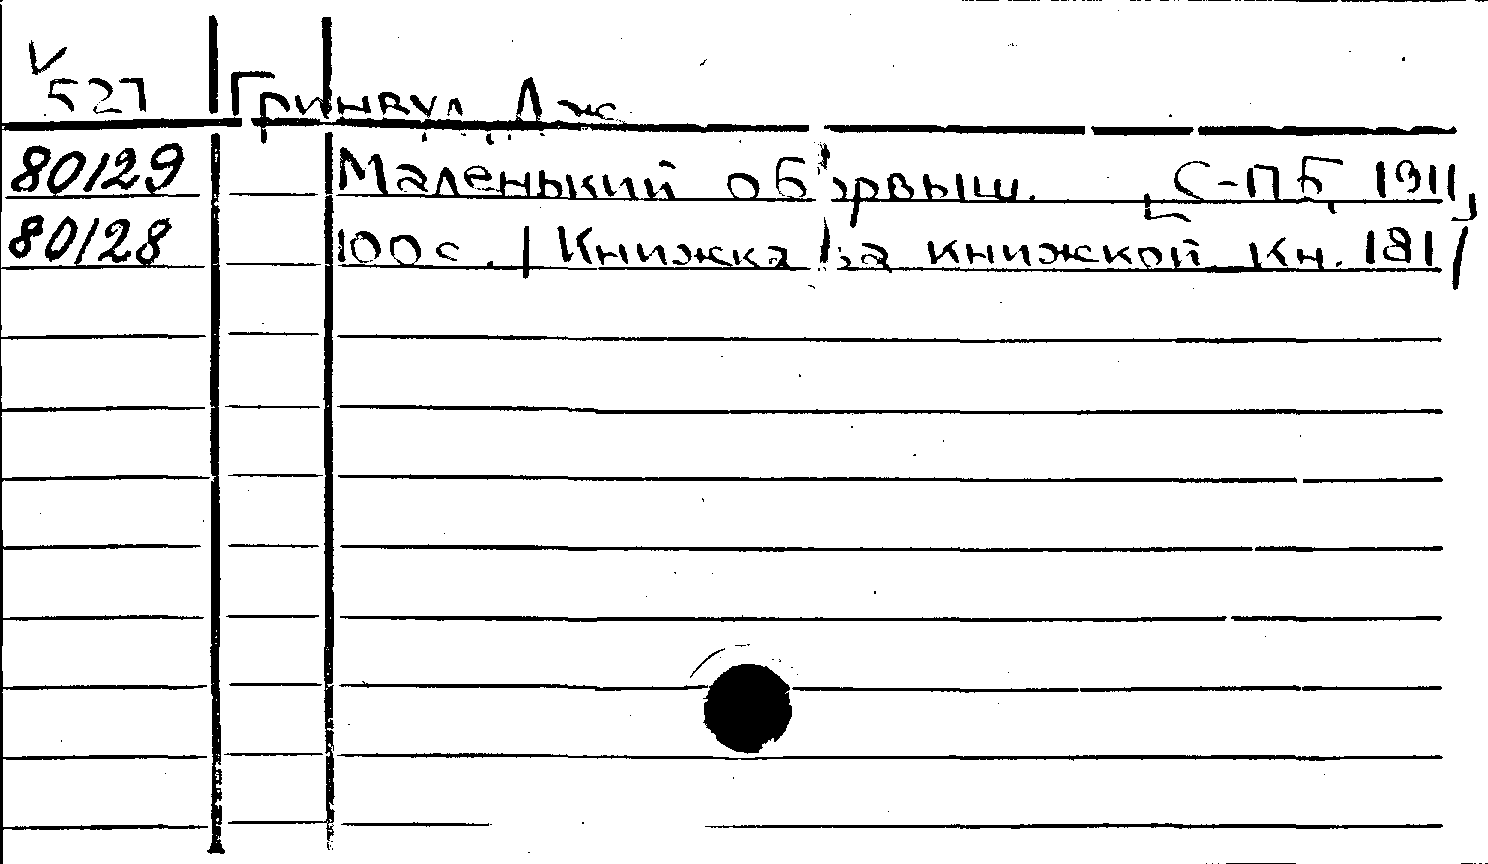 V
527 Гринвуд, Дж.
80129 Маленький оборвыш. [С-ПБ, 1911]
80128 100 с. /Книжка за книжкой. Кн. 181/